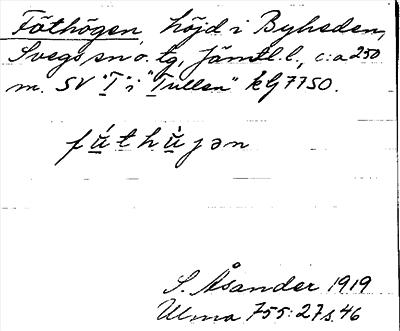 Föthögen, höjd i Byheden,
Svegs sn o. tg, Jämtl.l., c:a 250
m. SV "T" i "Tullen" kG 7750.
fút hùjən
S. Åsander 1919
Ulma 755:27 s. 46